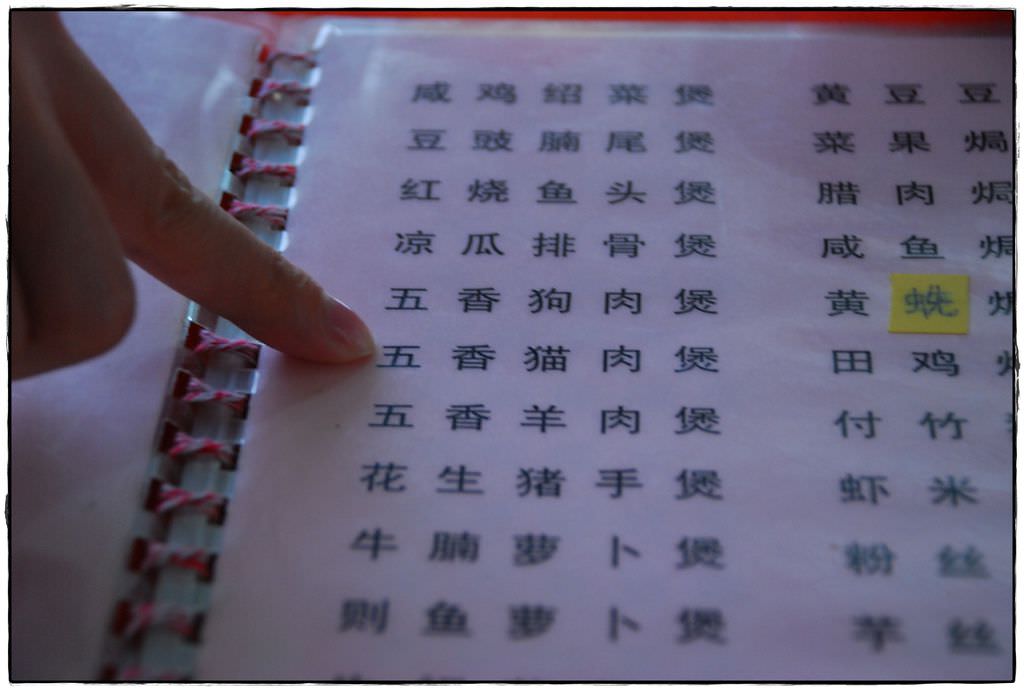 咸鸡绍菜煲
豆豉腩尾煲
红烧鱼头煲
凉瓜排骨煲
五香狗肉煲
五香猫肉煲
五香羊肉煲
花生猪手煲
牛腩萝卜煲
则鱼萝卜煲
黄豆豆
菜果焗
腊肉焗
咸鱼焗
黄
田鸡
付竹
虾米
粉丝
芋丝